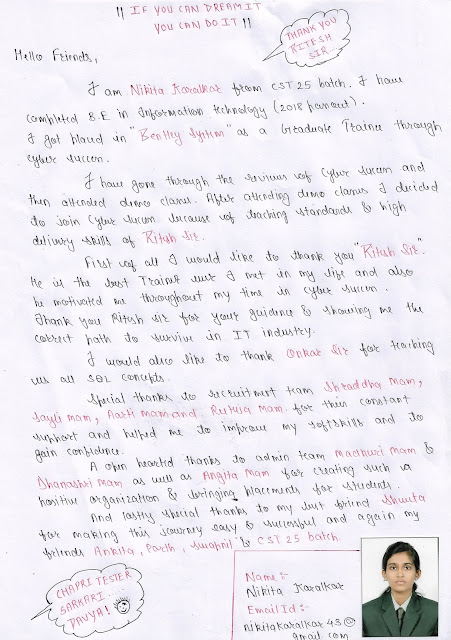 !! IF YOU CAN DREAM IT
YOU CAN DO IT !!
THANK YOU
RITESH
SIR...
Hello Friends,
I am Nikita Karalkar from CST 25 batch. I have
completed B.E in Information technology (2018 passout).
I got placed in "Bentley System" as a Graduate Trainee through
cyber success.
I have gone through the reviews of Cyber success and
then attended demo classes. After attending demo classes I decided
to join Cyber success because of teaching standards & high
delivery skills of Ritesh Sir.
First of all I would like to thank you "Ritesh Sir".
He is the best Trainer I met in my life and also
he motivated me throughout my time in cyber success.
Thank you Ritesh Sir for your guidance & showing me the
correct path to survive in IT industry.
I would also like to thank Onkar Sir for teaching
us all SQL concepts.
Special thanks to recruitment team Shraddha Mam,
Sayli mam, Aarti mam and Rutuja Mam for their constant
support and helped me to improve my softskills and to
gain confidence.
A open hearted thanks to admin team Madhuri Mam &
Dhanashri Mam as well as Anqita Mam for creating such a
positive organization & bringing placements for students.
And lastly special thanks to my best friend Shweta
for making this journey easy & successful and again my
friends Ankita, Parth, Swapnil & CST 25 batch.
CHAPRI TESTER
SARKARI...
DAVYA!
Name:-
Nikita Karalkar
Email Id:-
nikitakaralkar43@
gmail.com